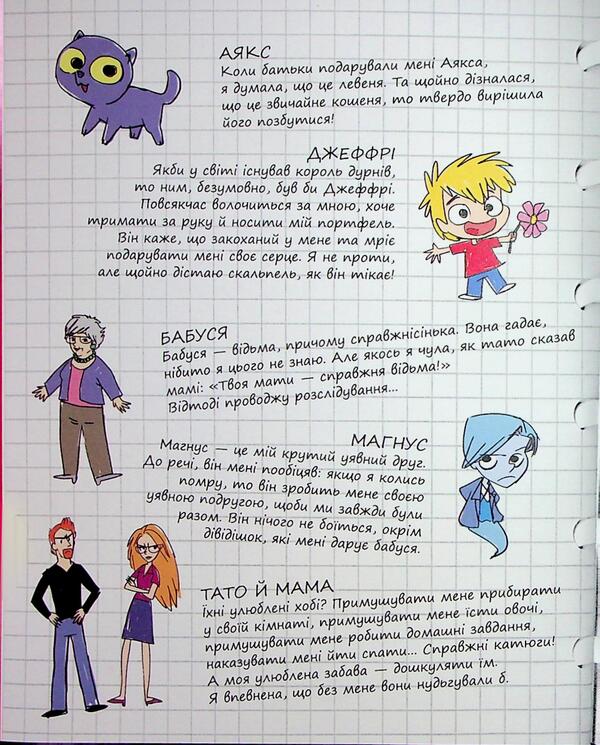 АЯКС
Коли батьки подарували мені Аякса,
я думала, що це левеня. Та щойно дізналася,
що це звичайне кошеня, то твердо вирішила
його позбутися!
ДЖЕФФРІ
Якби у світі існував король дурнів,
то ним, безумовно, був би Джеффрі.
Повсякчас волочиться за мною, хоче
тримати за руку й носити мій портфель.
Він каже, що закоханий у мене та мріє
подарувати мені своє серце. Я не проти,
але щойно дістаю скальпель, як він тікає!
БАБУСЯ
Бабуся — відьма, причому справжнісінька. Вона гадає,
нібито я цього не знаю. Але якось я чула, як тато сказав
мамі: «Твоя мати — справжня відьма!»
Відтоді проводжу розслідування...
МАГНУС
Магнус — це мій крутий уявний друг.
До речі, він мені пообіцяв: якщо я колись
помру, то він зробить мене своєю
уявною подругою, щоби ми завжди були
разом. Він нічого не боїться, окрім
дівідішок, які мені дарує бабуся.
ТАТО Й МАМА
Їхні улюблені хобі? Примушувати мене прибирати
у своїй кімнаті, примушувати мене їсти овочі,
примушувати мене робити домашні завдання,
наказувати мені йти спати... Справжні катюги!
А моя улюблена забава — дошкуляти їм.
Я впевнена, що без мене вони нудьгували б.